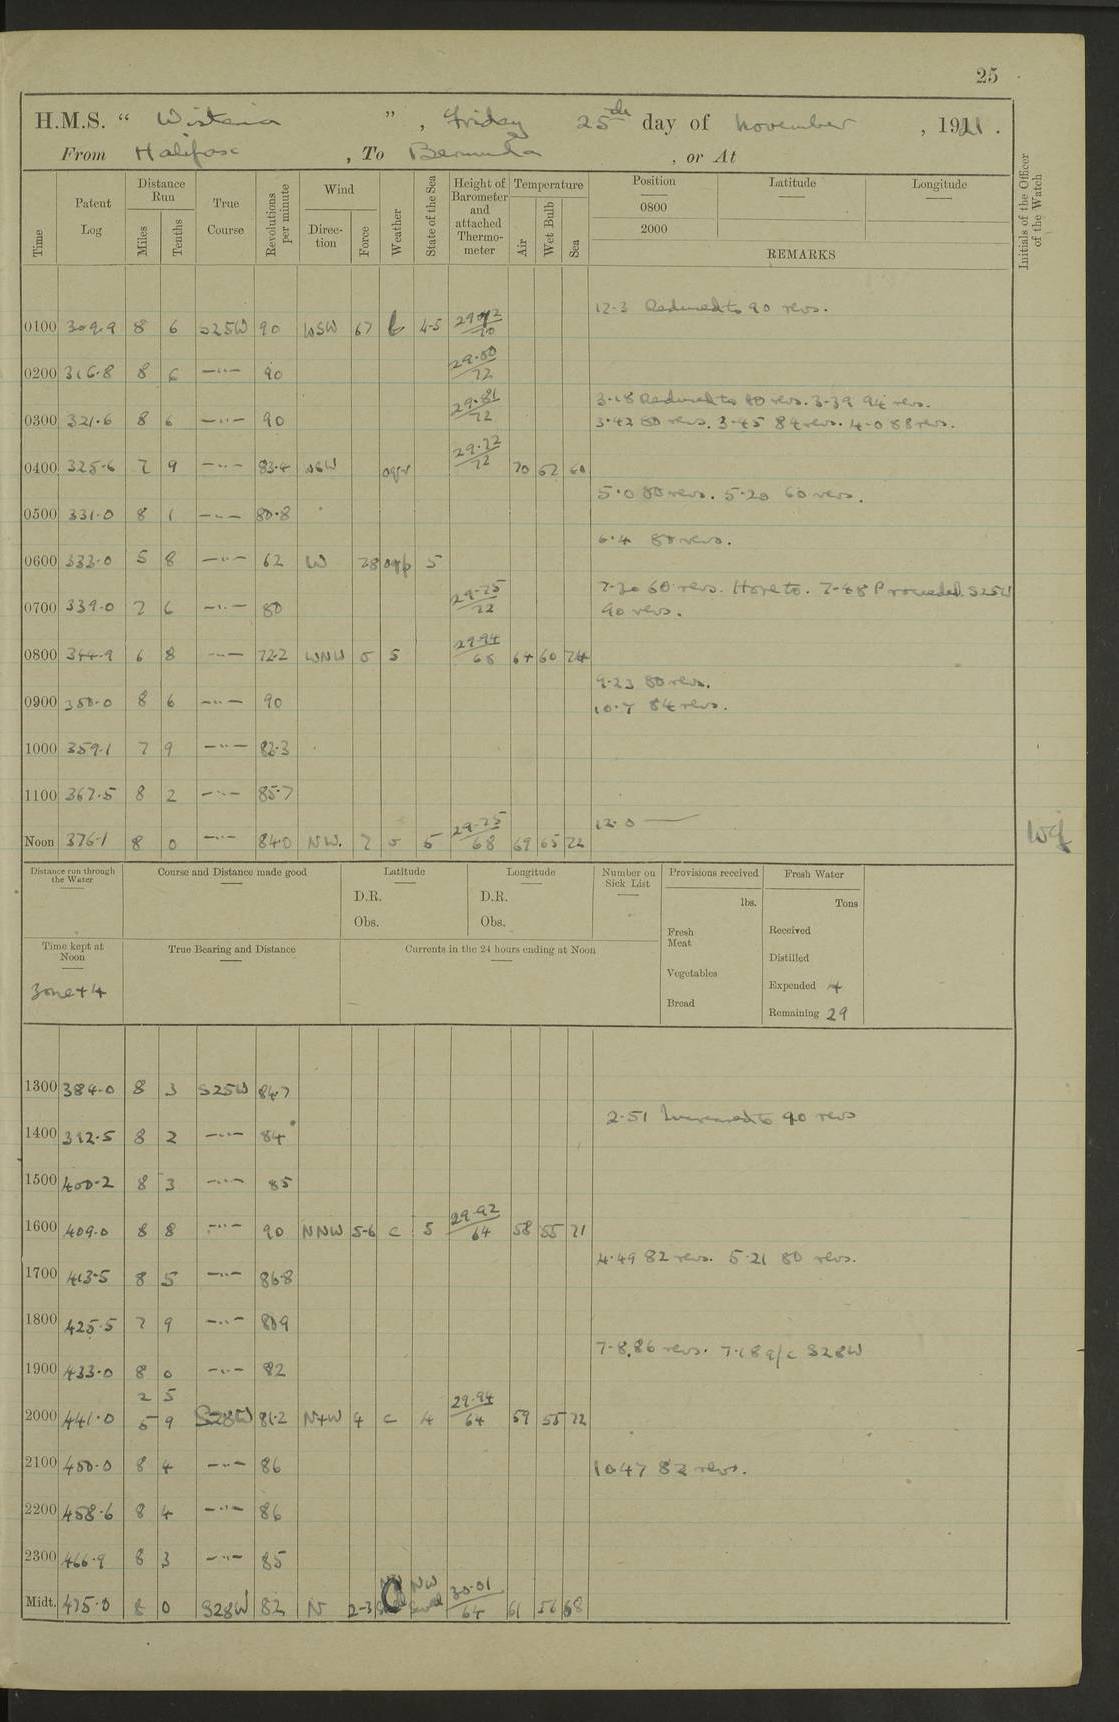 25
H.M.S. “ Wistaria ” , Friday 25th day of November , 1921 .
From Halifax , To Bermuda , or At
Time Patent Log Distance Run Miles Tenths True Course Revolutions per minute Wind Direction Force Weather State of the Sea Height of Barometer and attached Thermometer Temperature Air Wet Bulb Sea Position 0800 2000 Latitude Longitude REMARKS Initials of the Officer of the Watch
12.3 Reduced to 90 revs.
0100 309.9 8 6 S25W 90 WSW 67 b 4-5 /70
0200 316.8 8 6 —"— 90 29.80/72
3.18 Reduced to 80 revs. 3.39 94 revs.
0300 321.6 8 6 —"— 90 29.81/72 3.42 80 revs. 3.45 84 revs. 4.0 88 revs.
0400 325.6 7 9 —"— 83.4 WSW oqr 29.72/72 70 62 60
5.0 80 revs. 5.20 60 revs.
0500 331.0 8 1 —"— 80.8
6.4 80 revs.
0600 333.0 5 8 —"— 62 W 78 oqp 5
7.30 60 revs. Hove to. 7.48 Proceeded S25W
0700 339.0 7 6 —"— 80 29.75/72 90 revs.
0800 344.9 6 8 —"— 72.2 WNW 5 5 29.94/68 64 60 74
9.23 80 revs.
0900 350.0 8 6 —"— 90 10.7 84 revs.
1000 359.1 7 9 —"— 82.3
1100 367.5 8 2 —"— 85.7
12.0 —
Noon 376.1 8 0 —"— 84.0 NW. 7 o 5 29.75/68 69 65 72
Distance run through the Water Course and Distance made good Latitude D.R. Obs. Longitude D.R. Obs. Number on Sick List Provisions received lbs. Fresh Water Tons
Time kept at Noon True Bearing and Distance Currents in the 24 hours ending at Noon Fresh Meat Received
Distilled
Zone +4 Vegetables Expended 4
Bread Remaining 29
1300 384.0 8 3 S25W 84.7
2.51 Increased to 90 revs
1400 392.5 8 2 —"— 84
1500 400.2 8 3 —"— 85
1600 409.0 8 8 —"— 90 NNW 5-6 c 5 29.92/64 58 55 71
4.49 82 revs. 5.21 80 revs.
1700 413.5 8 5 —"— 86.8
1800 425.5 7 9 —"— 80.9
7.8, 86 revs. 7.18 a/c S28W
1900 433.0 8 0 —"— 82
2 5
2000 441.0 5 9 S28W 81.2 NxW 4 c 4 29.94/64 59 55 72
2100 450.0 8 4 —"— 86 1047 82 revs.
2200 458.6 8 4 —"— 86
2300 466.9 8 3 —"— 85
Midt. 475.0 8 0 S28W 82 N 2-3 C NW Swell 30.01/64 61 56 68